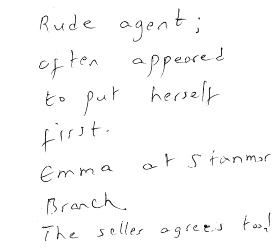 Rude agent;
often appeared
to put herself
first.
Emma at Stanmor
Branch
The seller agrees too!